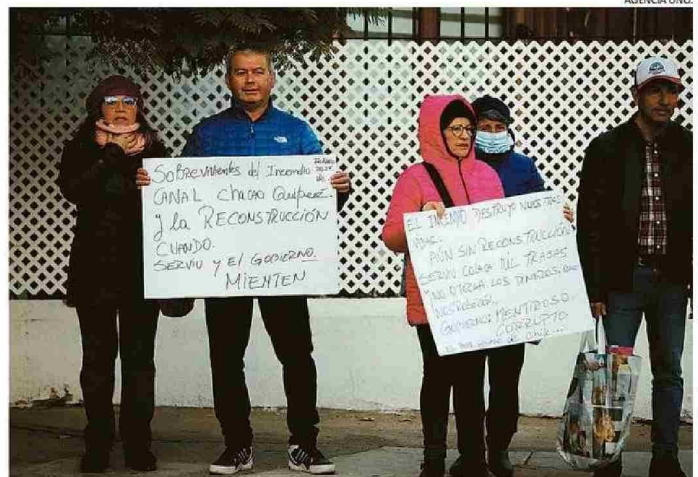 AGENCIA UNO.
SOBREVIVIENTES del Incendio
CANAL Chacao Quilpué.
y la RECONSTRUCCIÓN
CUANDO.
SERVIU y El GOBIERNO.
MIENTEN
EL INCENDIO DESTRUYO NUESTRAS
VIDAS.
AÚN SIN RECONSTRUCCIÓN
SERVIU COLOCA MIL TRABAS
NO OTORGA LOS DINEROS, PARA
GOBIERNO: MENTIROSO.
CORRUPTO